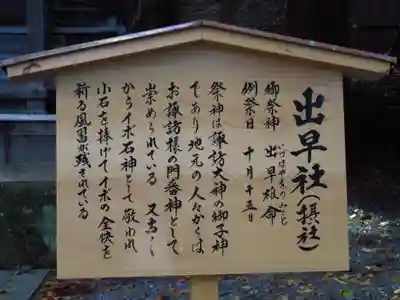 出早社(摂社)
いづはやをのみこと
御祭神 出早雄命
例祭日 十月十五日
祭神は諏訪大神の御子神
であり地元の人たからは
お諏訪様の門番神として
崇められている 又古く
からイボ石神として敬われ
小石を捧げてイボの全快を
祈る風習が残されている